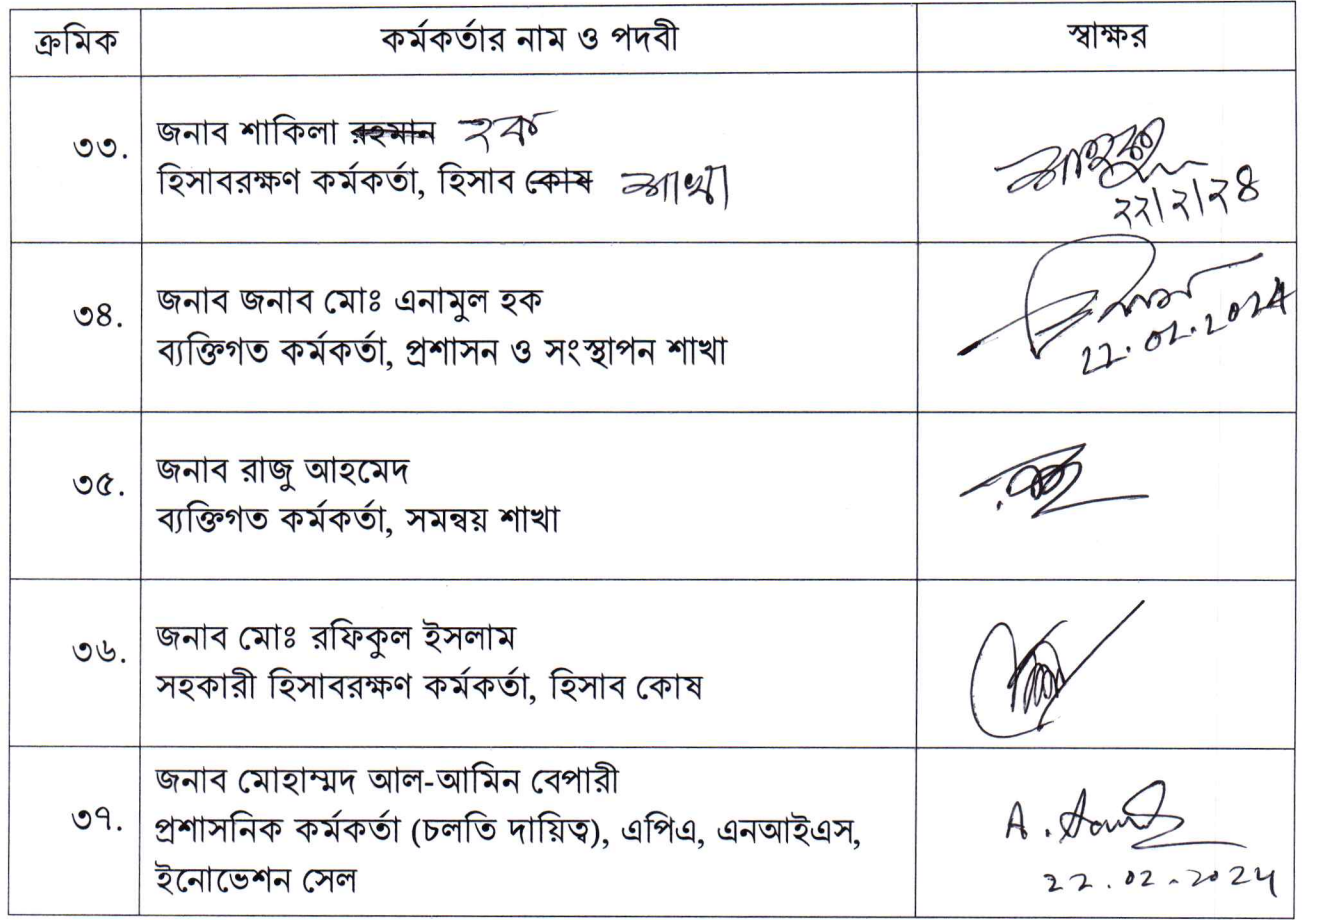 ক্রমিক কর্মকর্তার নাম ও পদবী স্বাক্ষর
৩৩. জনাব শাকিলা রহমান হক
হিসাবরক্ষণ কর্মকর্তা, হিসাব কোষ শাখা
২২/২/২৪
৩৪. জনাব জনাব মোঃ এনামুল হক
ব্যক্তিগত কর্মকর্তা, প্রশাসন ও সংস্থাপন শাখা
22.02.2024
৩৫. জনাব রাজু আহমেদ
ব্যক্তিগত কর্মকর্তা, সমন্বয় শাখা
৩৬. জনাব মোঃ রফিকুল ইসলাম
সহকারী হিসাবরক্ষণ কর্মকর্তা, হিসাব কোষ
৩৭. জনাব মোহাম্মদ আল-আমিন বেপারী
প্রশাসনিক কর্মকর্তা (চলতি দায়িত্ব), এপিএ, এনআইএস,
ইনোভেশন সেল
22.02.2024